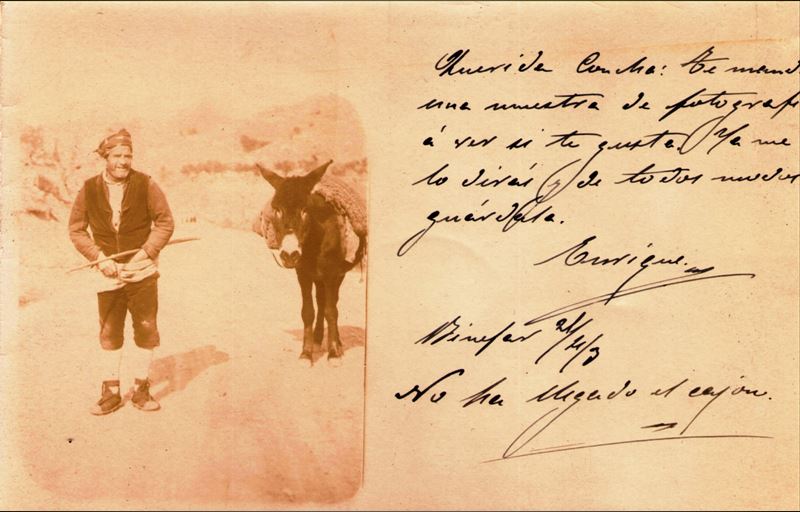 Querida Concha: te mand
una muestra de fotografi
á ver si te gusta. Ya me
lo dirás y de todos modos
guárdala.
Enrique.
Binefar 21/4/3
No ha llegado el cajón.